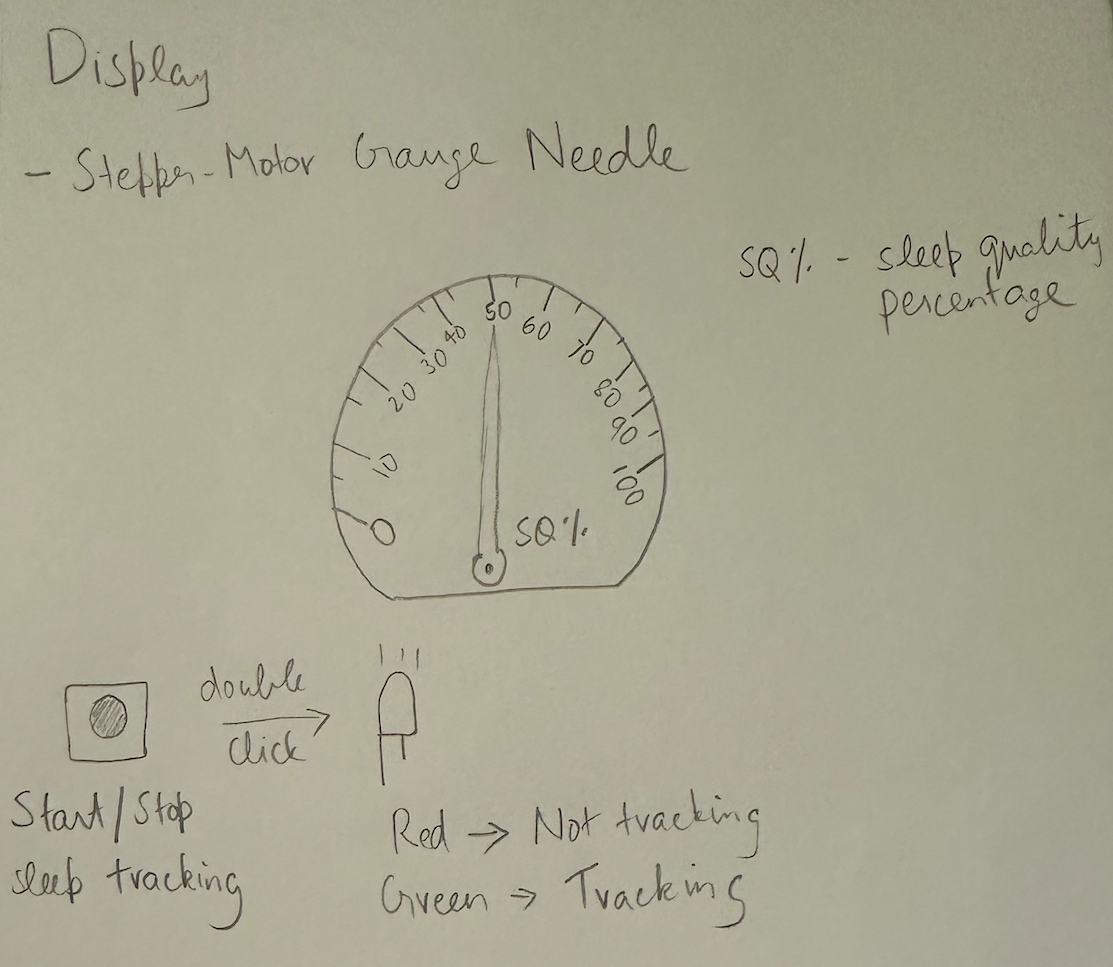 Display
- Stepper-Motor Gauge Needle
SQ% - sleep quality
percentage
0
10
20
30
40
50
60
70
80
90
100
SQ%
double
click
Start/Stop
sleep tracking
Red → Not tracking
Green → Tracking